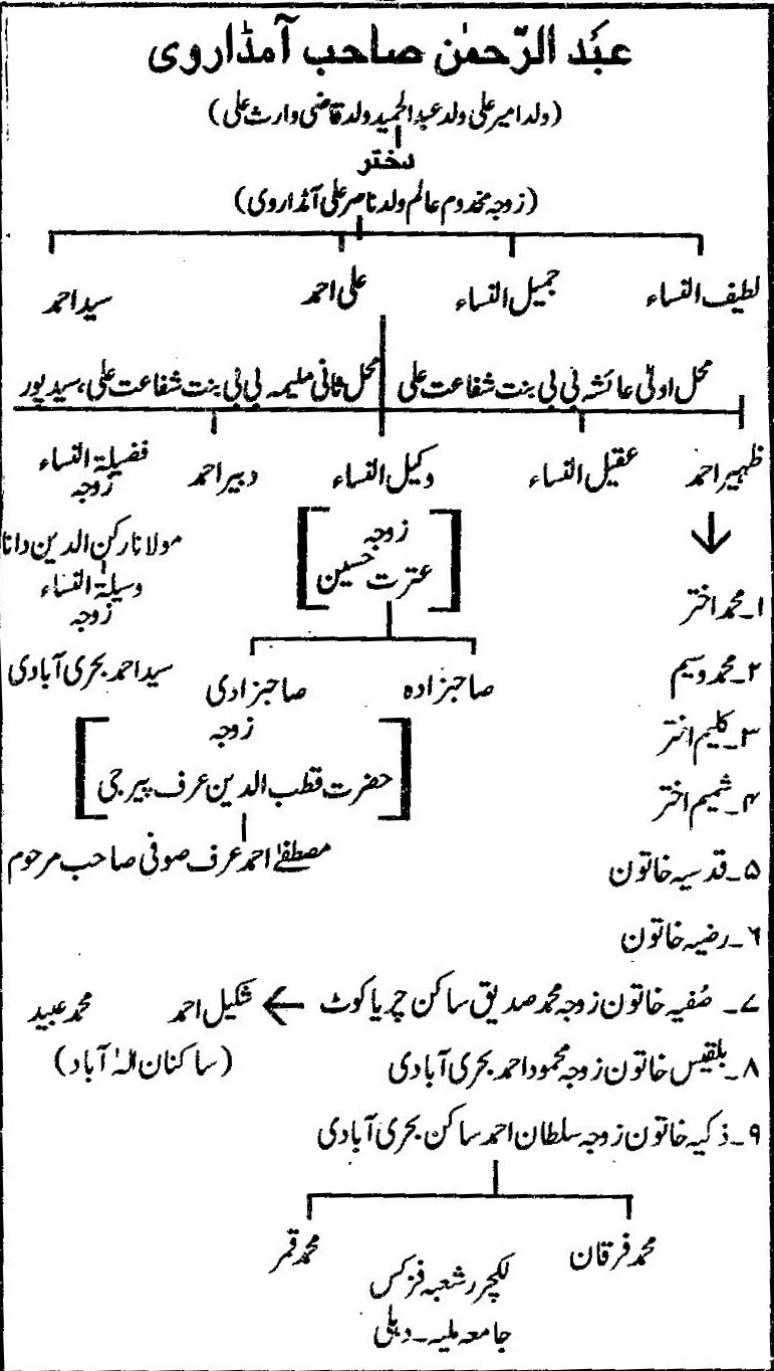 عبد الرّحمٰن صاحب آمڈاروی
(ولد امیر علی ولد عبد الحمید ولد قاضی وارث علی)
دختر
(زوجہ مخدوم عالم ولد ناصر علی آنڈاروی)
لطیف النساء جمیل النساء علی احمد سید احمد
محل اولیٰ عائشہ بی بی بنت شفاعت علی محل ثانی ملیمہ بی بی بنت شفاعت علی، سید پور
ظہیر احمد عقیل النساء وکیل النساء دبیر احمد فضیلۃ النساء
زوجہ
زوجہ
عترت حسین
مولانا رکن الدین دانا
وسیلۃ النساء
زوجہ
سید احمد بحری آبادی
صاحبزادہ صاحبزادی
زوجہ
حضرت قطب الدین عرف پیر جی
مصطفےٰ احمد عرف صوفی صاحب مرحوم
۱۔ محمد اختر
۲۔ محمد وسیم
۳۔ کلیم انتر
۴۔ شمیم اختر
۵۔ قدسیہ خاتون
۶۔ رضیہ خاتون
۷۔ صُفیہ خاتون زوجہ محمد صدیق ساکن چریا کوٹ ← شکیل احمد محمد عبید
(ساکنان الہٰ آباد)
۸۔ بلقیس خاتون زوجہ محمود احمد بحری آبادی
۹۔ ذکیہ خاتون زوجہ سلطان احمد ساکن بحری آبادی
محمد فرقان محمد قمر
لکچرر شعبہ فزکس
جامعہ ملیہ۔ دہلی